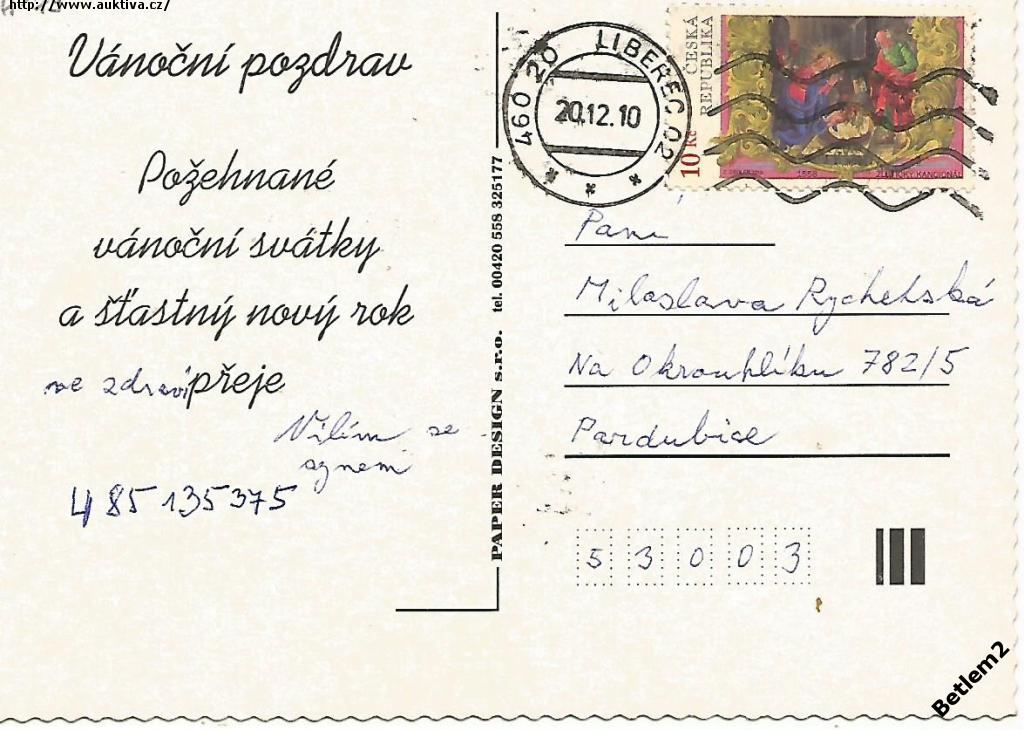 http://www.auktiva.cz/
Vánoční pozdrav
Požehnané
vánoční svátky
a šťastný nový rok
ve zdraví přeje
se
synem
485135375
PAPER DESIGN s.r.o. tel. 00420 558 325177
460 20 LIBEREC 02
20.12.10
ČESKÁ
REPUBLIKA
10 Kč
1558 ŽLUTICKÝ KANCIONÁL
Paní
Miloslava Rychetská
Na Okrouhlíku 782/5
Pardubice
53003
Betlem2